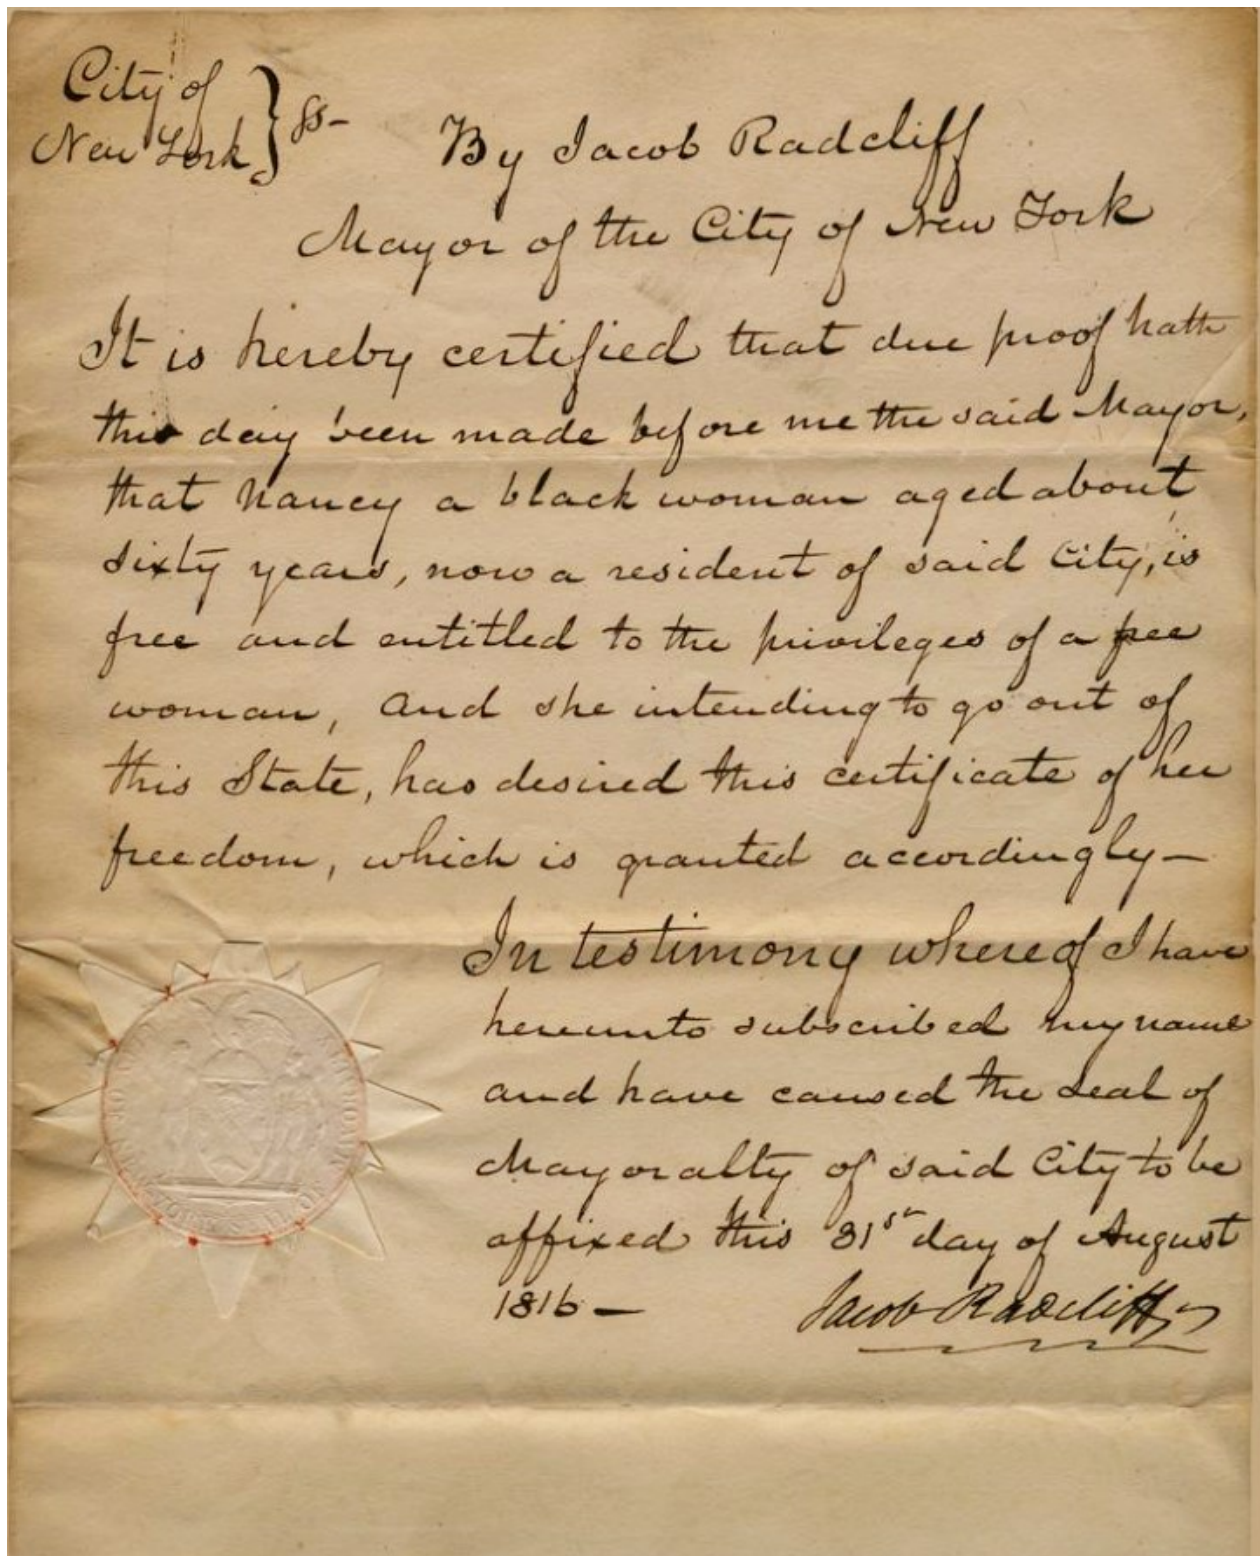 City of
New York } ss-
By Jacob Radcliff
Mayor of the City of New York
It is hereby certified that due proof hath
this day been made before me the said Mayor,
that Nancy a black woman aged about
sixty years, now a resident of said City, is
free and entitled to the privileges of a free
woman, and she intending to go out of
this State, has desired this certificate of her
freedom, which is granted accordingly—
In testimony whereof I have
hereunto subscribed my name
and have caused the seal of
Mayoralty of said City to be
affixed this 31st day of August
1816 —
Jacob Radcliff